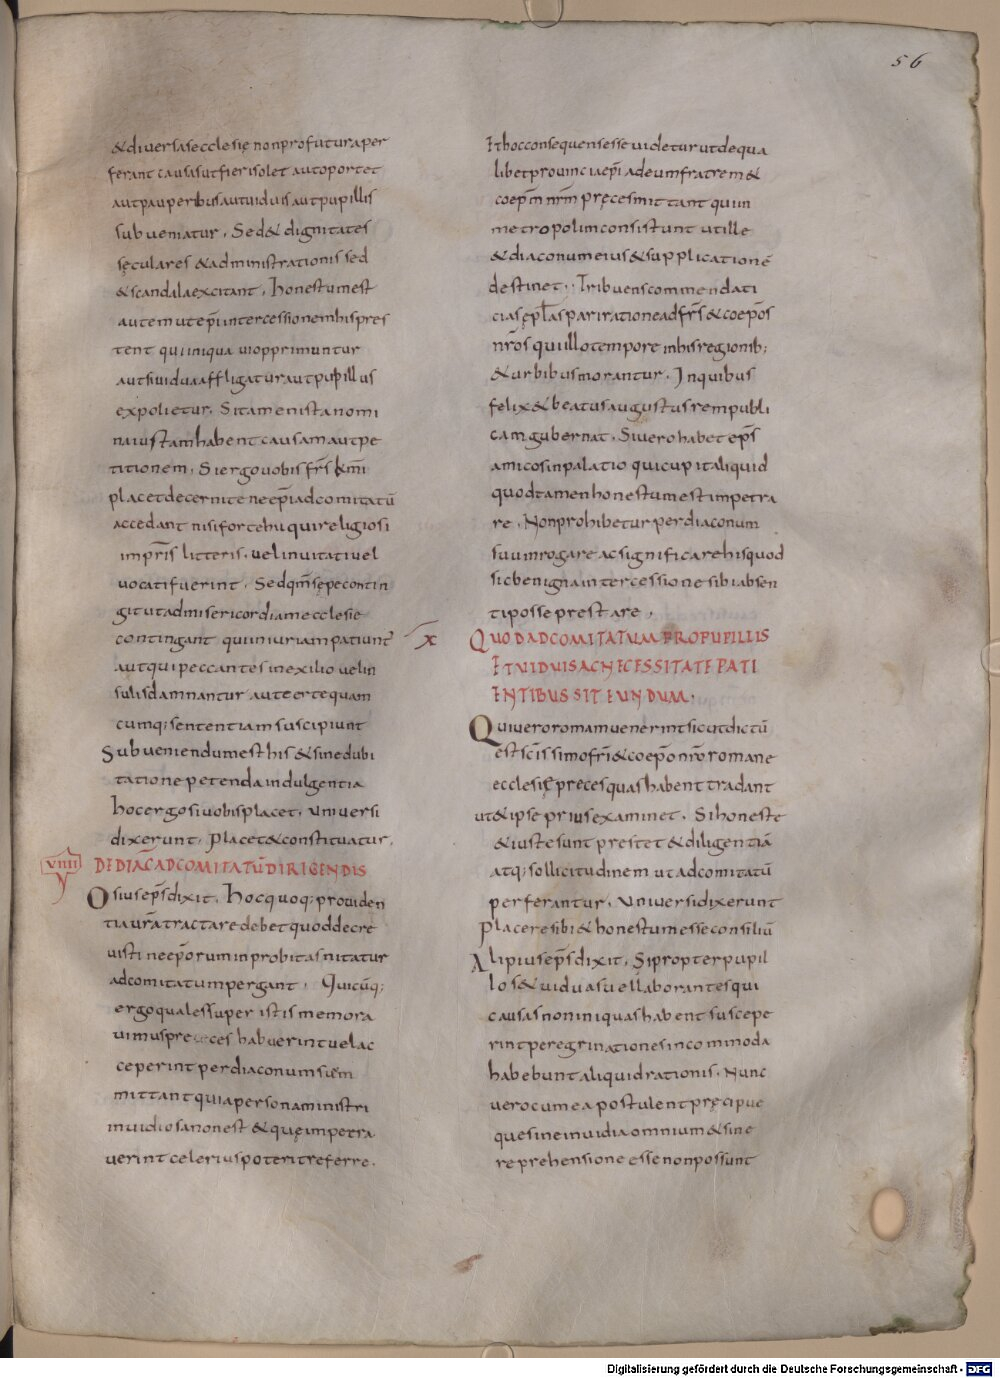 56
&diuersasecclesię nonprofuturaper
ferant causasutfierisolet autoportet
autpauperibusautuiduisautpupillis
subueniatur. Sed& dignitates
sęculares &administrationis sed
&scandalaexcitant. honestumest
autemutep̄iintercessionemhispres
tent quiiniqua uiopprimuntur
autsiuiduaaffligaturautpupillus
expolietur. Sitamenistanomi
naiustamhabentcausamautpe
titionem. Siergouobisfr̄s k̄mi
placetdecerniteneep̄iadcomitatū
accedant nisifortehiiquireligiosi
impr̄is litteris. uelinuitatiuel
uocatifuerint. Sedqm̄sępecontin
gitutadmisericordiamecclesie
contingant quiiniuriampatiunt
autquipeccantesinexilio uelin
sulisdamnantur auteertequam
cumq; sententiamsuscipiunt
Subueniendumesthis &sinedubi
tationepetendaindulgentia
hocergosiuobisplacet. uniuersi
dixerunt. placet&constituatur.
VIIII DEDIAC̄ADCOMITATŪDIRIGENDIS
Osiusep̄sdixit. hocquoq; prouiden
tiaur̄atractaredebetquoddecre
uistineep̄oruminprobitasnitatur
adcomitatumpergant. Quicūq;
ergoqualessuper istismemora
uimuspreces habuerintuelac
ceperintperdiaconumsuēm
mittantquiapersonaministri
inuidiosanonest &quęimpetra
uerint celeriuspoteritreferre.
Ethocconsequensesseuideturutdequa
libetprouinciaep̄iadeumfratrem&
coep̄m nr̄m pręcesmittant quiin
metropolimconsistunt utille
&diaconumeius&supplicationē
destinet. Tribuenscommendati
ciasępl̄aspariratione adfr̄s &coep̄os
nr̄os quiillotempore inhisregionib;
&urbibusmorantur. Inquibus
felix&beatusaugustusrempubli
camgubernat. Siuerohabetep̄s
amicosinpalatio quicupitaliquid
quodtamenhonestumestimpetra
re. Nonprohibeturperdiaconum
suumrogareacsignificarehisquod
sicbenignaintercessionesibiabsen
tiposseprestare.
X QUODADCOMITATUMPROPUPILLIS
ETUIDUISACNECESSITATEPATI
ENTIBUSSITEUNDUM.
Quiueroromamuenerintsicutdictū
estsc̄issimofr̄i&coep̄onr̄oromane
ecclesięprecesquashabenttradant
ut&ipse priusexaminet. Sihoneste
&iustesunt prestet&diligentiā
atq; sollicitudinem utadcomitatū
perferantur. Uniuersidixerunt
Placeresibi&honestumesseconsiliū
Alipiusep̄sdixit. Sipropterpupil
los&uiduasuellaborantesqui
causasnoniniquashabentsuscepe
rintperegrinationesincommoda
habebuntaliquidrationis. Nunc
uerocumeapostulentpręcipue
quesineinuidiaomnium&sine
reprehensioneessenonpossunt
Digitalisierung gefördert durch die Deutsche Forschungsgemeinschaft - DFG